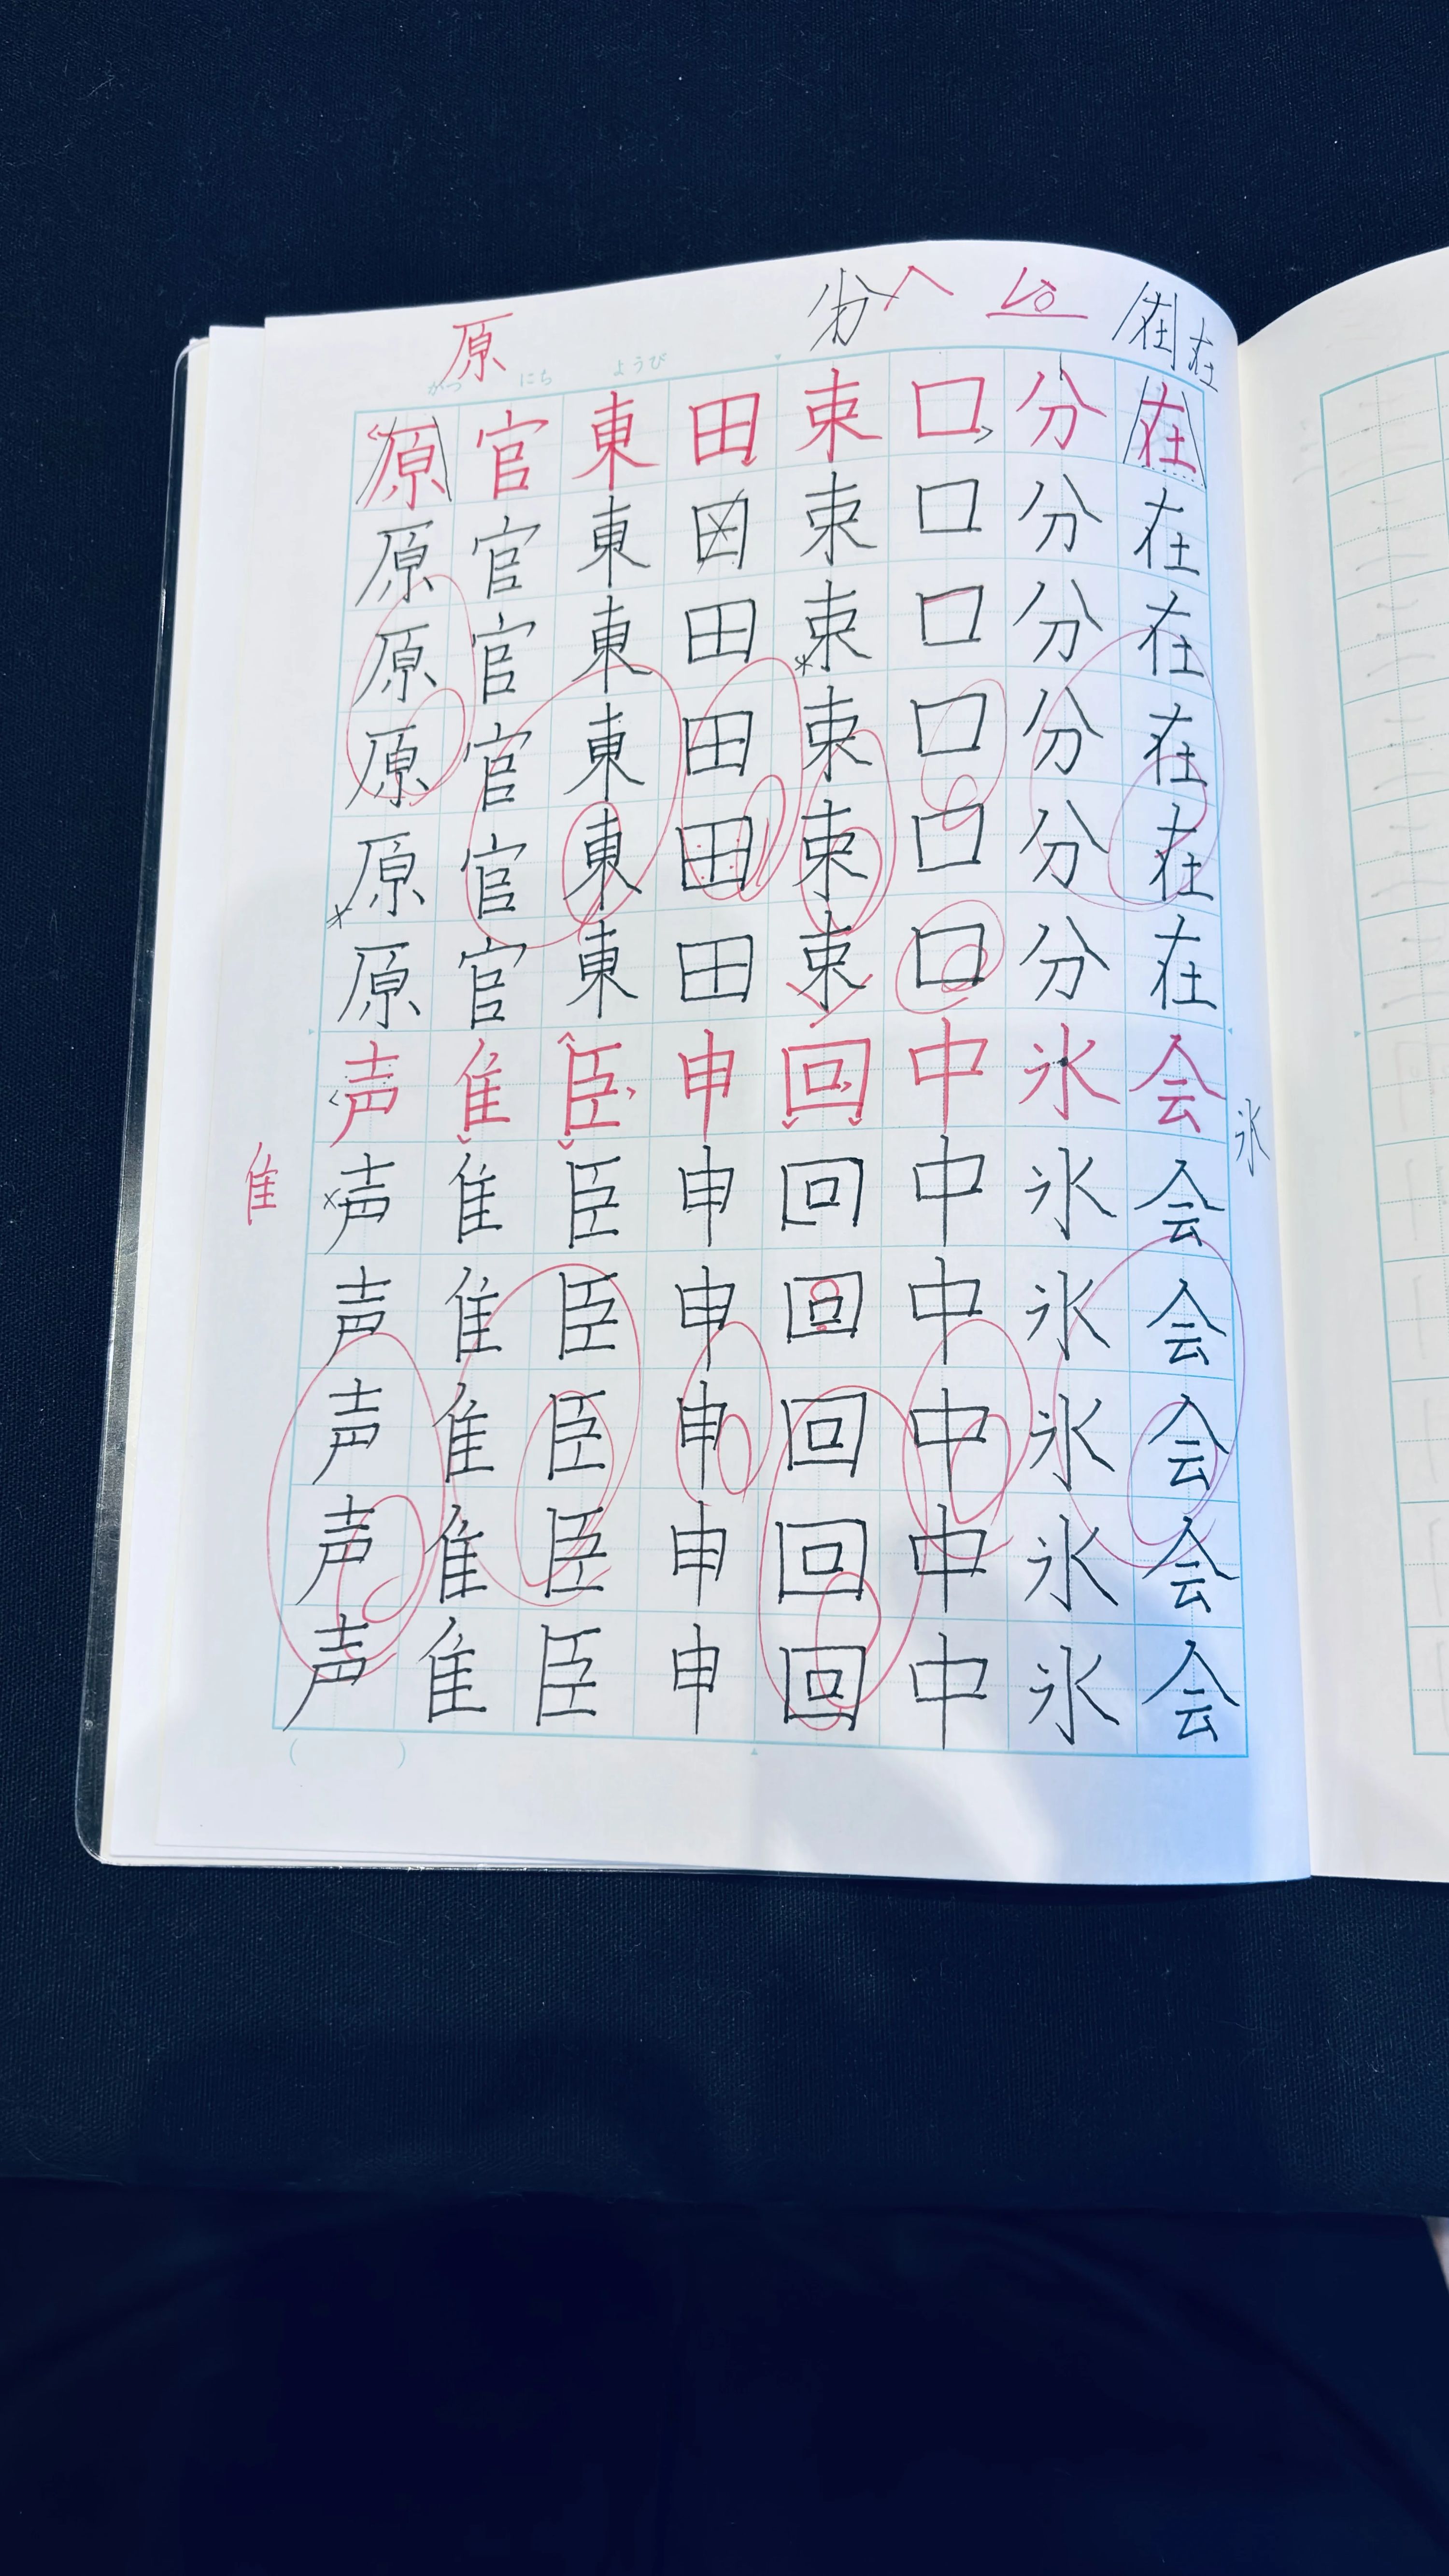 在在
分
原
がつ にち ようび
在在在在在在会会会会会会
分分分分分分氷氷氷氷氷氷
口口口口口口中中中中中中
束束束束束束回回回回回回
田田田田田申申申申申申
東東東東東東臣臣臣臣臣臣
官官官官官官隹隹隹隹隹隹
原原原原原原声声声声声声
氷
隹